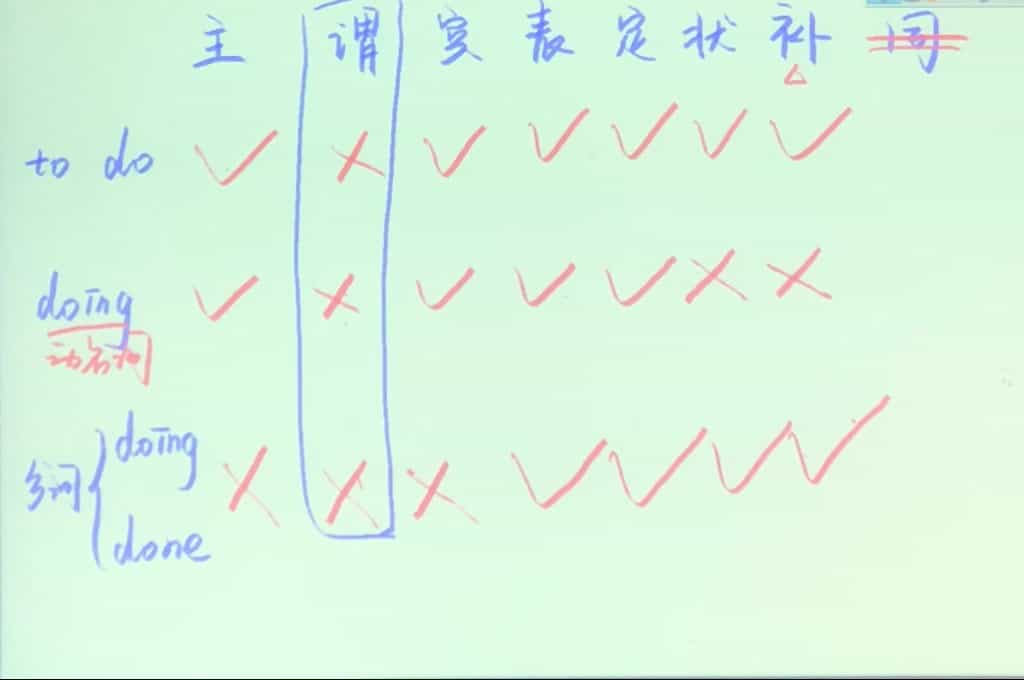 主 谓 宾 表 定 状 补 同
to do ✓ × ✓ ✓ ✓ ✓ ✓
doing ✓ × ✓ ✓ ✓ × ×
动名词
分词 { doing × × × ✓ ✓ ✓ ✓
done